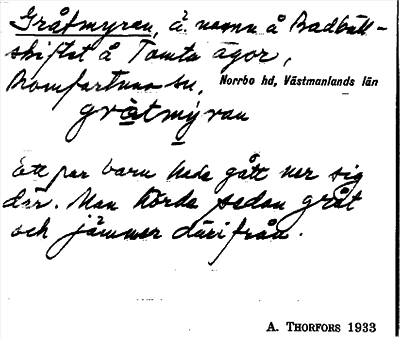 Gråtmyren, ä. namn å Badbäll-
skiftet å Tomta ägor,
Romfartuna sn, Norrbo hd, Västmanlands län
gråtmýran
Ett par barn hade gått ner sig
där. Man hörde sedan gråt
och jämmer därifrån.
A. THORFORS 1933